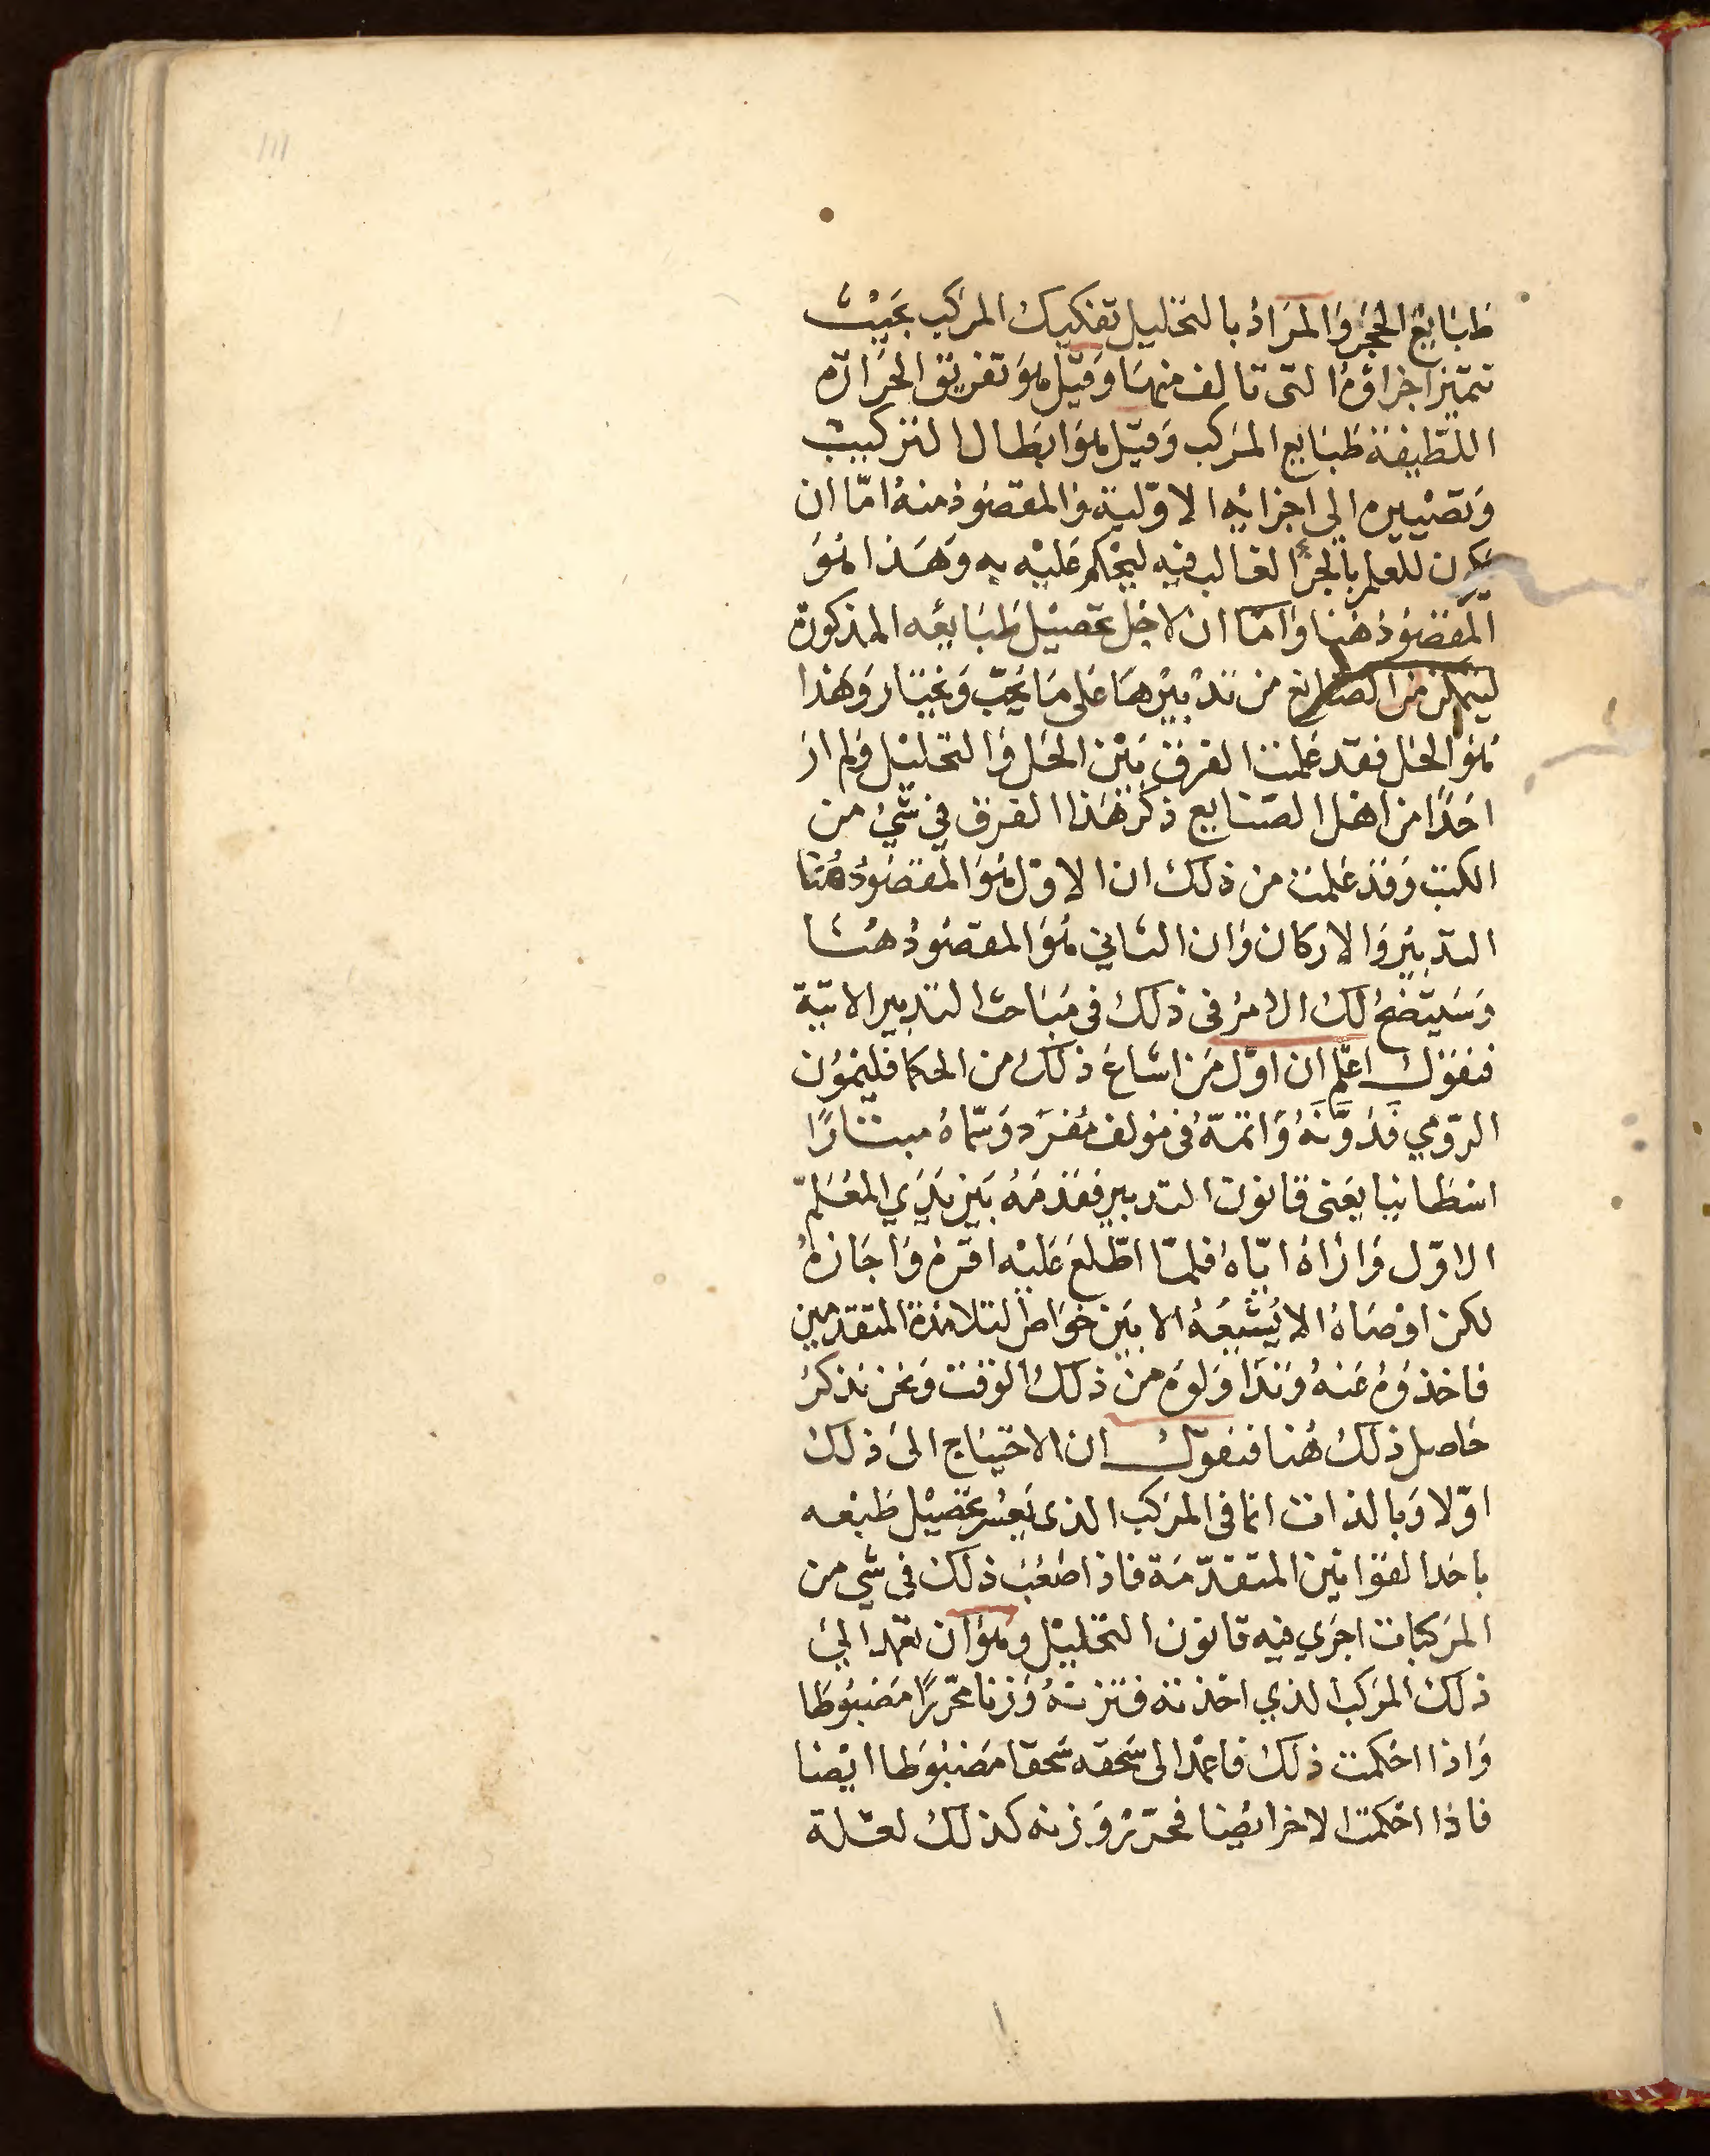 111
طَبَايعُ الحجَر وَالمرَادُ بالتحليل تفكيك المركب بحَيْث
تتميّز اجزاؤهُ التى تالف منهَا وَقيْل هُوَ تفريق الحرَارَة
اللّطيفة طَبَايع المركب وَقيْل هُوَ ابطال التركيب
وَتصْييره الى اجزائِهِ الاوّليّة وَالمقصُود منهُ امّا ان
يكون للعلم بالجزْء الغالب فيْه ليحْكم عَليْه به وَهَذا هُوَ
المقصُود هُنا وَامّا ان لاجْل تحصيْل طَبَايعُه المذكورة
ليتمكن من الصَنايع من تدْبيْرهَا عَلى مَا يحبّ وَيختار وَهَذا
هُوَ الحَل فقد عَلمت الفرق بَيْن الحَل وَالتحليْل وَلم ار
احَدًا من اهْل الصنايع ذكرَ هَذا الفرق في شيْء من
الكتب وَقد عَلمت من ذلك ان الاوّل هُوَ المقصُودُ هُنا
التدبيْر وَالاركان وَان الثاني هُوَ المقصُودُ هُنا
وَسَيتضحُ لكَ الامرُ فى ذلك فى مبَاحث التدبير الاتيّة
فنقوْل اعلم ان اوّل مَن اشاعَ ذلكَ من الحكما فليمُون
الرّومي فَدَوَّنَهُ وَاتمّهُ فى مُولف مُفرَد وَسَمّاهُ ميتارًا
اسطانيا يعَنى قانون التدبير فقدمَهُ بَيْن يَدَي المعَلم
الاوّل وَارَاهُ ايّاهُ فلمّا اطّلعَ عَليْه اقرّهُ وَاجَازهُ
لكن اوْصَاهُ الا يُشيعُهُ الا بَيْن خوَاص التلامذة المتقدمين
فاخذوْهُ عَنهُ وَتدَاوَلوْهُ من ذلك الوَقت وَنحن نذكرُ
حَاصل ذلكَ هُنا فنقوْل ان الاحتيَاج الىَ ذلك
اوّلا وَبالذات انما فى المرَكب الذى يَعْسُر تحصيْل طبْعه
باحَد القوَانيْن المتقدّمَة فاذا صَعُبَ ذلكَ فى شي من
المرَكبات اجرَي فيه قانون التحليْل وَهُوَ ان تعمد الىَ
ذلك المركب الذي اخذته فتزنهُ وَزنا محرّرًا مَضبُوطا
وَاذا احْكمت ذلكَ فاعْمد الى سَحقه سَحقا مَضبُوطا ايْضا
فاذا احكمت الاخر ايضا فحرّر وَزنه كذلكَ لعَلة